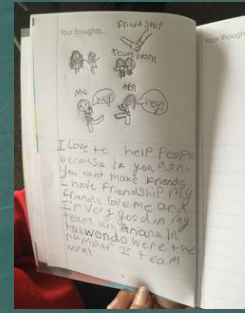 Your thoughts...
Friendship
team work
Me
help
hey
I Love to help People
because if you don't
you cant make friends
I have friendship my
friends love me and
I'm very good in my
team with Ariana in
taikwondo were the
number 1# team
work!
Your thoughts